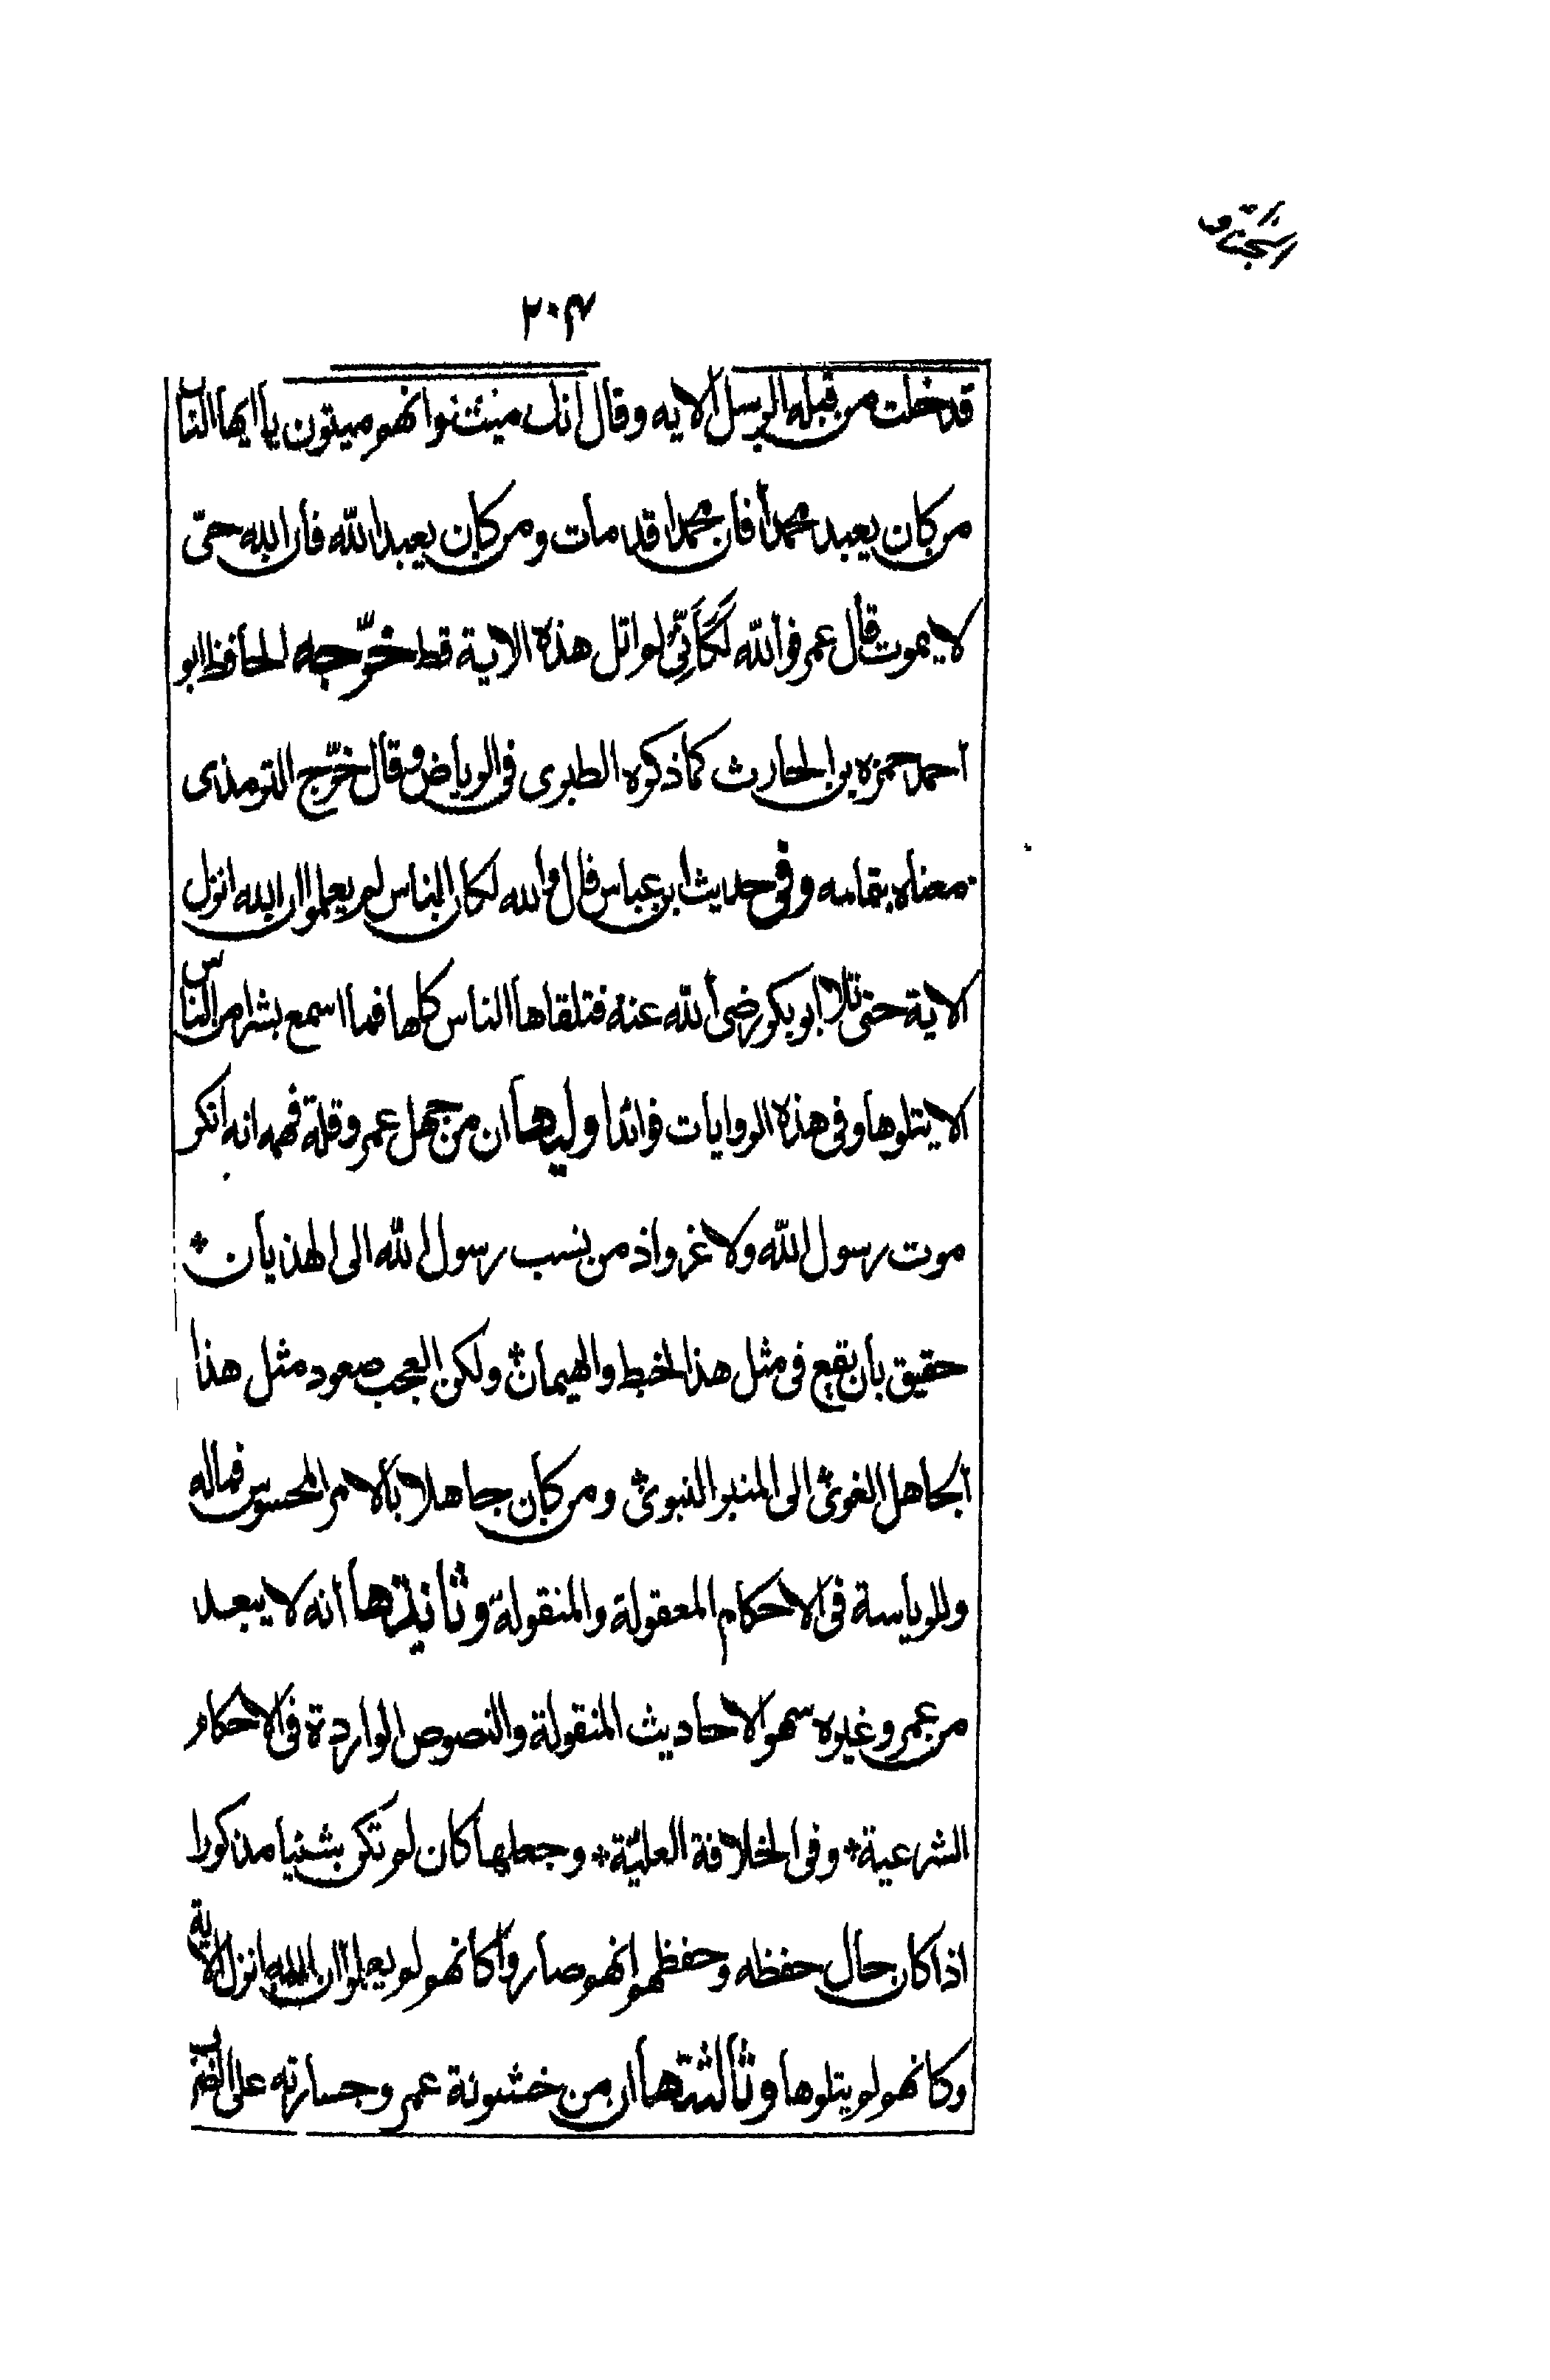 ٢٠٤
قد خلت من قبله الرسل الآيه وقال انك ميت وانهم ميتون يا ايها الناس
من كان يعبد محمدا فان محمدا قد مات ومن كان يعبد الله فان الله حىّ
لا يموت قال عمر فوالله لكأنّى لم اتل هذه الاية قط خرّجه الحافظ ابو
احمد حمزه بن الحارث كما ذكره الطبرى فى الرياض وقال خرّج الترمذى
معناه بتمامه وفى حديث ابن عباس قال والله لكان الناس لم يعلموا ان الله انزل
الاية حتى تلا ابو بكر رضى الله عنه فتلقاها الناس كلها فما اسمع بشرا من الناس
الا يتلوها وفى هذه الروايات فوائد اوليها ان من جهل عمر وقلة فهمه انه انكر
موت رسول الله ولا غرو اذ من نسب رسول الله الى الهذيان *
حقيق بان يقع فى مثل هذا الخبط والهيمان * ولكن العجب صعود مثل هذا
الجاهل الغوى * الى المنبر النبوى * ومن كان جاهلا بالامر المحسوس فماله
وللرياسة فى الاحكام المعقولة والمنقولة وثانيتها انه لا يبعد
من عمر وغيره سهو الاحاديث المنقولة والنصوص الواردة فى الاحكام
الشرعية * وفى الخلافة العليّة * وجعلها كان لم تكن شيئا مذكورا
اذا كان حال حفظه وحفظهم انهم صاروا كانهم لم يعلموا ان الله انزل الاية
وكانهم لم يتلوها وثالثتها ان من خشونة عمر وجسارته على